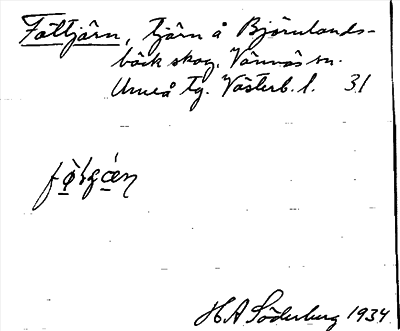 Fåttjärn, tjärn å Björnlands-
bäck skog. Vännäs sn.
Umeå tg. Västerb. l. 31
H A Söderberg 1934